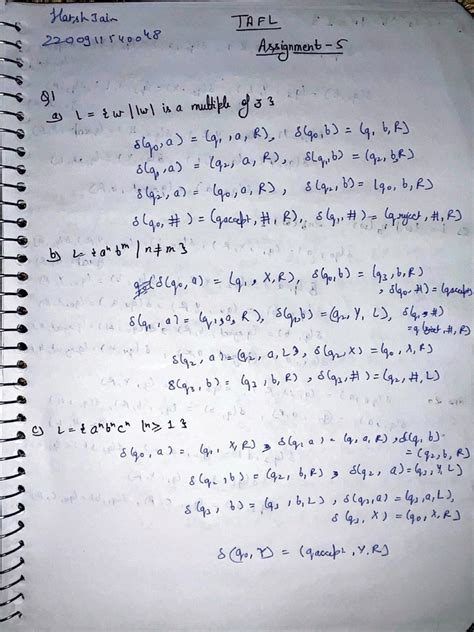 Harsh Jain
TAFL
2200911540048
Assignment - 5
Q1
a) L = { w | |w| is a multiple of 3 }
δ(q0, a) = (q1, a, R), δ(q0, b) = (q, b, R)
δ(q1, a) = (q2, a, R), δ(q1, b) = (q2, b, R)
δ(q2, a) = (q0, a, R), δ(q2, b) = (q0, b, R)
δ(q0, #) = (qaccept, #, R), δ(q1, #) = (qreject, #, R)
b) L = { aⁿ bᵐ | n ≠ m }
δ(q0, a) = (q1, X, R), δ(q0, b) = (q3, b, R)
, δ(q0, #) = (qaccept
δ(q1, a) = (q1, a, R), δ(q1, b) = (q2, Y, L), δ(q1, #)
= q(reject, #, R)
δ(q2, a) = (q2, a, L), δ(q2, X) = (q0, X, R)
δ(q3, b) = (q3, b, R), δ(q3, #) = (q2, #, L)
c) L = { aⁿ bⁿ cⁿ | n ≥ 1 }
δ(q0, a) = (q1, X, R), δ(q1 a) = (q1, a, R), δ(q1, b)
= (q2, b, R)
δ(q2, b) = (q2, b, R), δ(q2, a) = (q3, Y, L)
δ(q3, b) = (q3, b, L), δ(q3, a) = (q3, a, L),
δ(q3, X) = (q0, X, R)
δ(q0, Y) = (qaccept, Y, R)